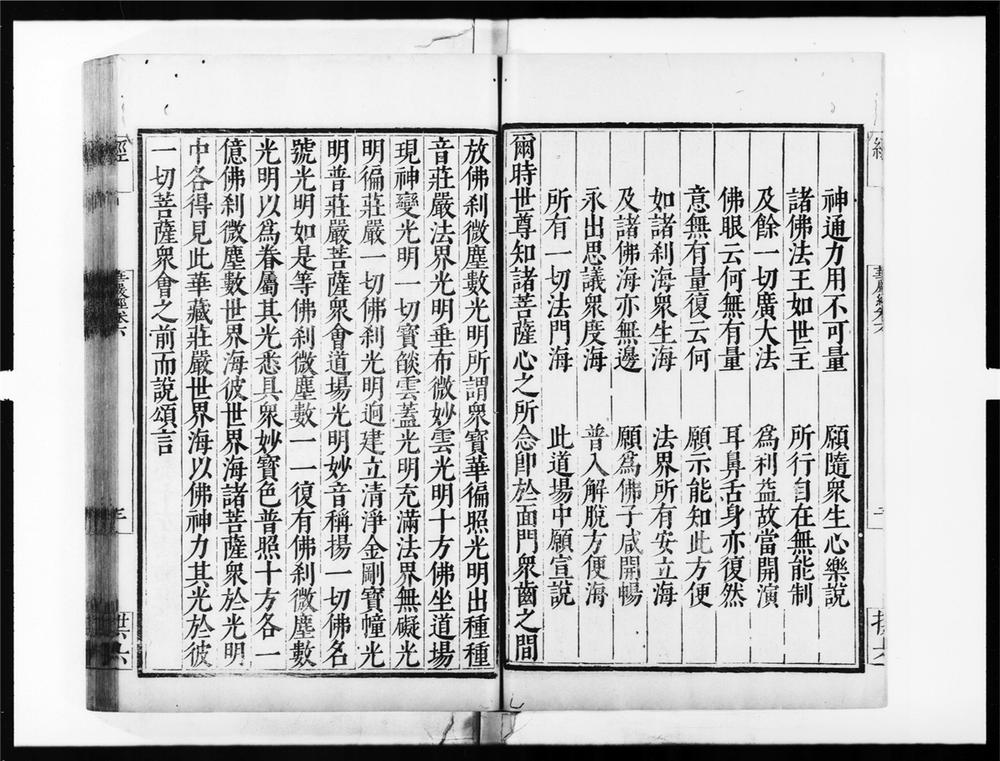 神通力用不可量　願隨衆生心樂說
諸佛法王如世主　所行自在無能制
及餘一切廣大法　爲利益故當開演
佛眼云何無有量　耳鼻舌身亦復然
意無有量復云何　願示能知此方便
如諸刹海衆生海　法界所有安立海
及諸佛海亦無邊　願爲佛子咸開暢
永出思議衆度海　普入解脫方便海
所有一切法門海　此道場中願宣說
爾時世尊知諸菩薩心之所念卽於面門衆齒之間
放佛刹微塵數光明所謂衆寶華徧照光明出種種
音莊嚴法界光明垂布微妙雲光明十方佛坐道場
現神變光明一切寶燄雲蓋光明充滿法界無礙光
明徧莊嚴一切佛刹光明逈建立清淨金剛寶幢光
明普莊嚴菩薩衆會道場光明妙音稱揚一切佛名
號光明如是等佛刹微塵數一一復有佛刹微塵數
光明以爲眷屬其光悉具衆妙寶色普照十方各一
億佛刹微塵數世界海彼世界海諸菩薩衆於光明
中各得見此華藏莊嚴世界海以佛神力其光於彼
一切菩薩衆會之前而說頌言
經
華嚴經卷六